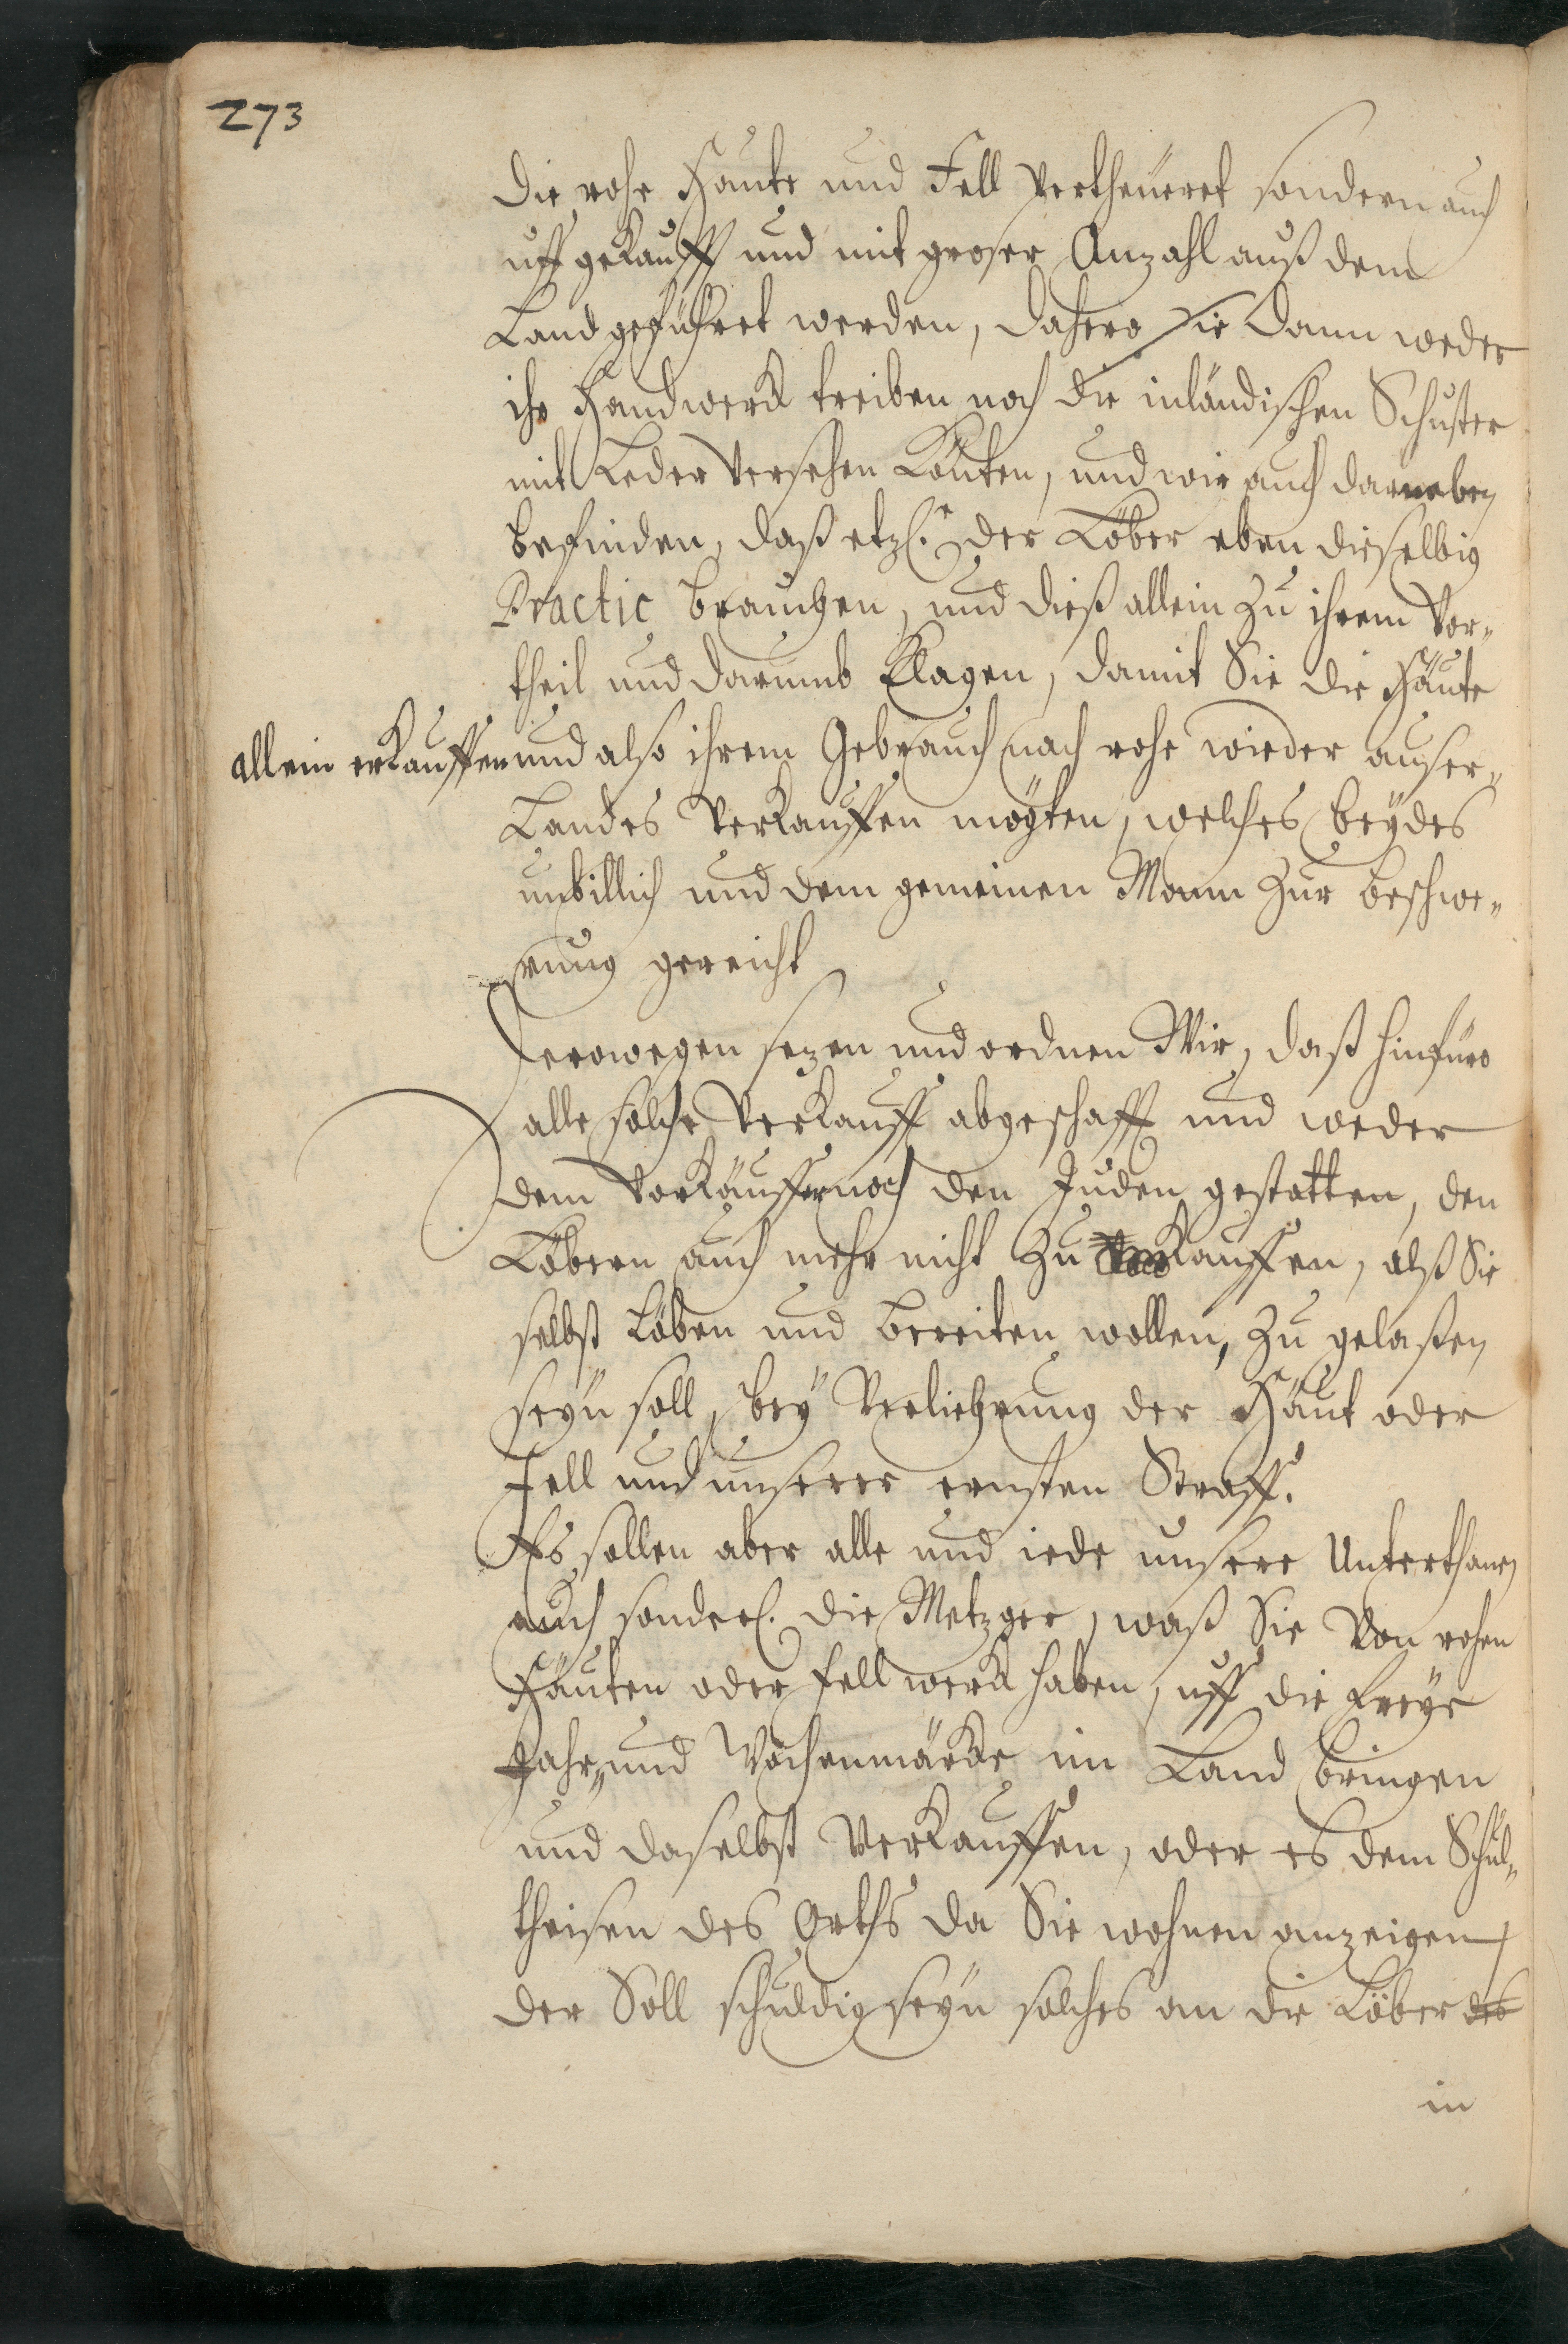 273
die rohe Haute und Fell vertheueret sondern auch
uff gekaufft und mit groser Anzahl auß dem
Land geführet werden, dahero sie dann weder
ihr Handwerck treiben noch die inländischen Schuster
mit Leder versehen könten, und wir auch darneben
befinden, daß etzl. der Löber eben dieselbig
Practic brauchen, und dieß allein zu ihrem Vor„
theil und darumb klagen, damit Sie die Häute
allein erkauffen und also ihrem Gebrauch nach rohe wieder auser„
Landes verkauffen mögten, welches beÿdes
unbillich und dem gemeinen Mann zur beschwe„
rung gereicht
Derowegen sezen und ordnen Wir, daß hinfüro
alle solche Verkauff abgeschafft und weder
dem Vorkäuffer noch den Juden gestatten, den
Löbern auch mehr nicht zu kauffen, alß Sie
selbst Löben und bereiten wollen, zu gelaßen
seÿn soll, beÿ Verliehrung der Häut oder
Fell und unserer ernsten Straff.
Es sollen aber alle und iede unsere Unterthanen
auch sonderl. die Metzger, waß Sie von rohen
Häuten oder fellwerck haben, uff die freÿe
Jahr„ und Wochenmärcke im Land bringen
und daselbst verkauffen, oder es dem Schul„
theisen des Orths da Sie wohnen anzeigen,
der Soll schuldig seÿn solches an die Löber des
in